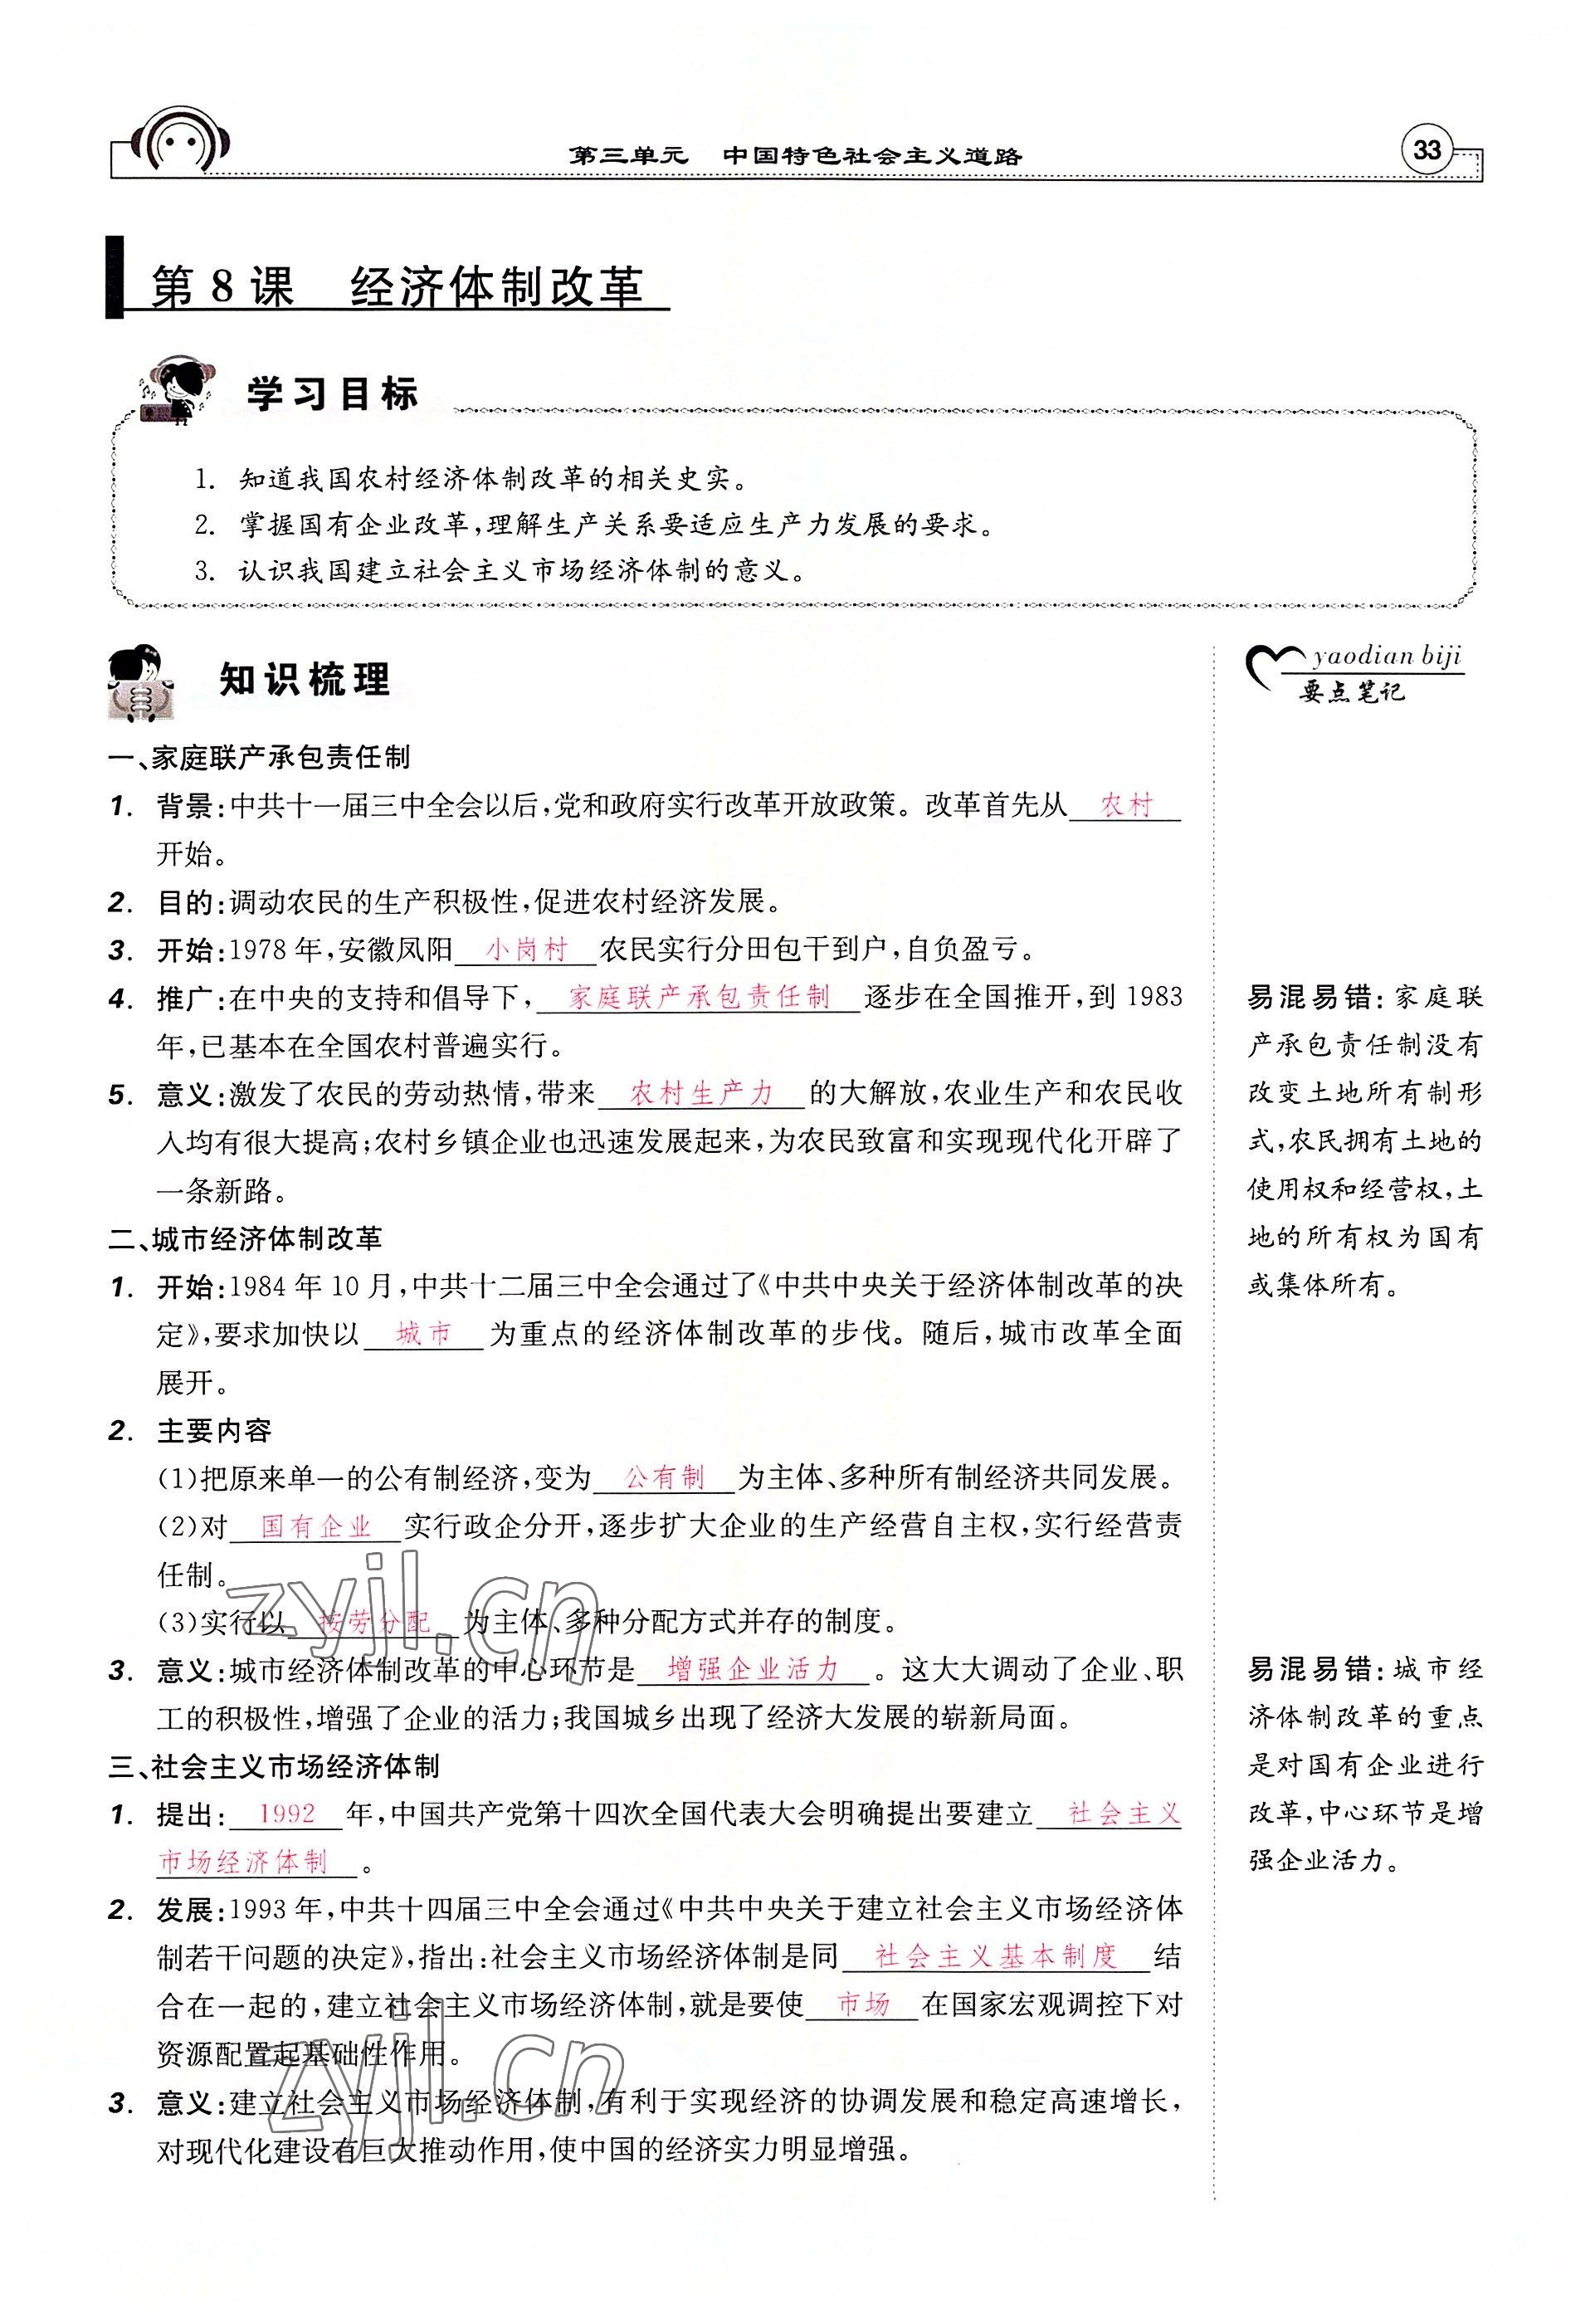 第三单元 中国特色社会主义道路
33
第 8 课 经济体制改革
学习目标
1. 知道我国农村经济体制改革的相关史实。
2. 掌握国有企业改革,理解生产关系要适应生产力发展的要求。
3. 认识我国建立社会主义市场经济体制的意义。
知识梳理
一、家庭联产承包责任制
1. 背景:中共十一届三中全会以后,党和政府实行改革开放政策。改革首先从 农村
开始。
2. 目的:调动农民的生产积极性,促进农村经济发展。
3. 开始:1978 年,安徽凤阳 小岗村 农民实行分田包干到户,自负盈亏。
4. 推广:在中央的支持和倡导下, 家庭联产承包责任制 逐步在全国推开,到 1983
年,已基本在全国农村普遍实行。
5. 意义:激发了农民的劳动热情,带来 农村生产力 的大解放,农业生产和农民收
入均有很大提高;农村乡镇企业也迅速发展起来,为农民致富和实现现代化开辟了
一条新路。
二、城市经济体制改革
1. 开始:1984 年 10 月,中共十二届三中全会通过了《中共中央关于经济体制改革的决
定》,要求加快以 城市 为重点的经济体制改革的步伐。随后,城市改革全面
展开。
2. 主要内容
(1)把原来单一的公有制经济,变为 公有制 为主体、多种所有制经济共同发展。
(2)对 国有企业 实行政企分开,逐步扩大企业的生产经营自主权,实行经营责
任制。
(3)实行以 按劳分配 为主体、多种分配方式并存的制度。
3. 意义:城市经济体制改革的中心环节是 增强企业活力 。这大大调动了企业、职
工的积极性,增强了企业的活力;我国城乡出现了经济大发展的崭新局面。
三、社会主义市场经济体制
1. 提出: 1992 年,中国共产党第十四次全国代表大会明确提出要建立 社会主义
市场经济体制 。
2. 发展:1993 年,中共十四届三中全会通过《中共中央关于建立社会主义市场经济体
制若干问题的决定》,指出:社会主义市场经济体制是同 社会主义基本制度 结
合在一起的,建立社会主义市场经济体制,就是要使 市场 在国家宏观调控下对
资源配置起基础性作用。
3. 意义:建立社会主义市场经济体制,有利于实现经济的协调发展和稳定高速增长,
对现代化建设有巨大推动作用,使中国的经济实力明显增强。
yaodian biji
要点笔记
易混易错:家庭联
产承包责任制没有
改变土地所有制形
式,农民拥有土地的
使用权和经营权,土
地的所有权为国有
或集体所有。
易混易错:城市经
济体制改革的重点
是对国有企业进行
改革,中心环节是增
强企业活力。
zyjl.cn
zyjl.cn